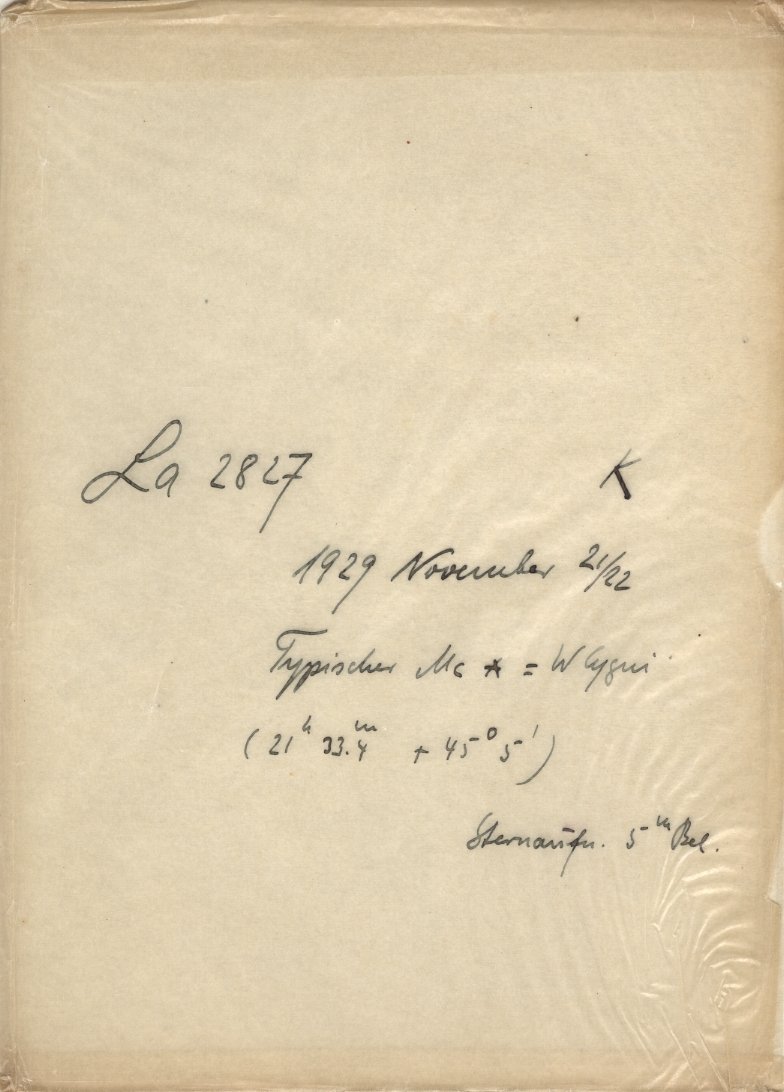 La 2827 K
1929 November 21/22
Typischer Mc ★ = W Cygni
(21ʰ 33.4ᵐ + 45° 5')
Sternaufn. 5ᵐ Bel.